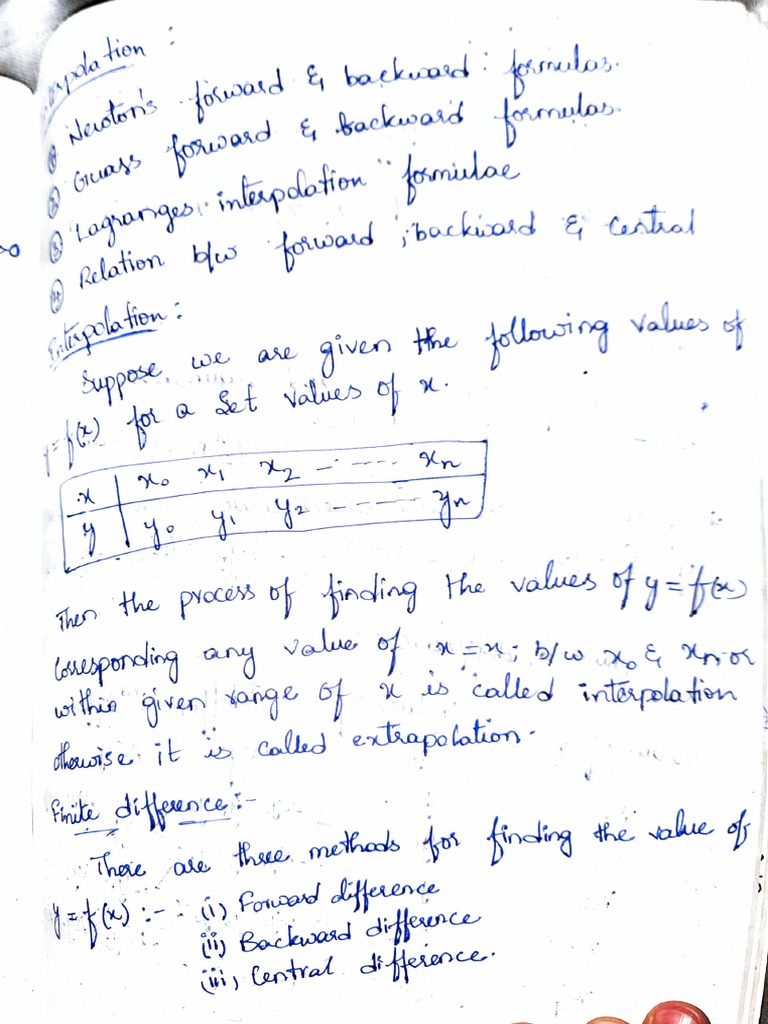 Interpolation :
① Newton's forward & backward formulas.
② Guass forward & backward formulas.
③ Lagranges interpolation formulae
④ Relation b/w forward, backward & central
Interpolation :
Suppose we are given the following values of
y = f(x) for a set values of x.
x | x₀ x₁ x₂ - - - - - xₙ
y | y₀ y₁ y₂ - - - - - - yₙ
Then the process of finding the values of y = f(x)
corresponding any value of x = xᵢ b/w x₀ & xₙ or
within given range of x is called interpolation
otherwise it is called extrapolation.
Finite difference :-
There are three methods for finding the value of
y = f(x) :- (i) Forward difference
(ii) Backward difference
(iii) Central difference.